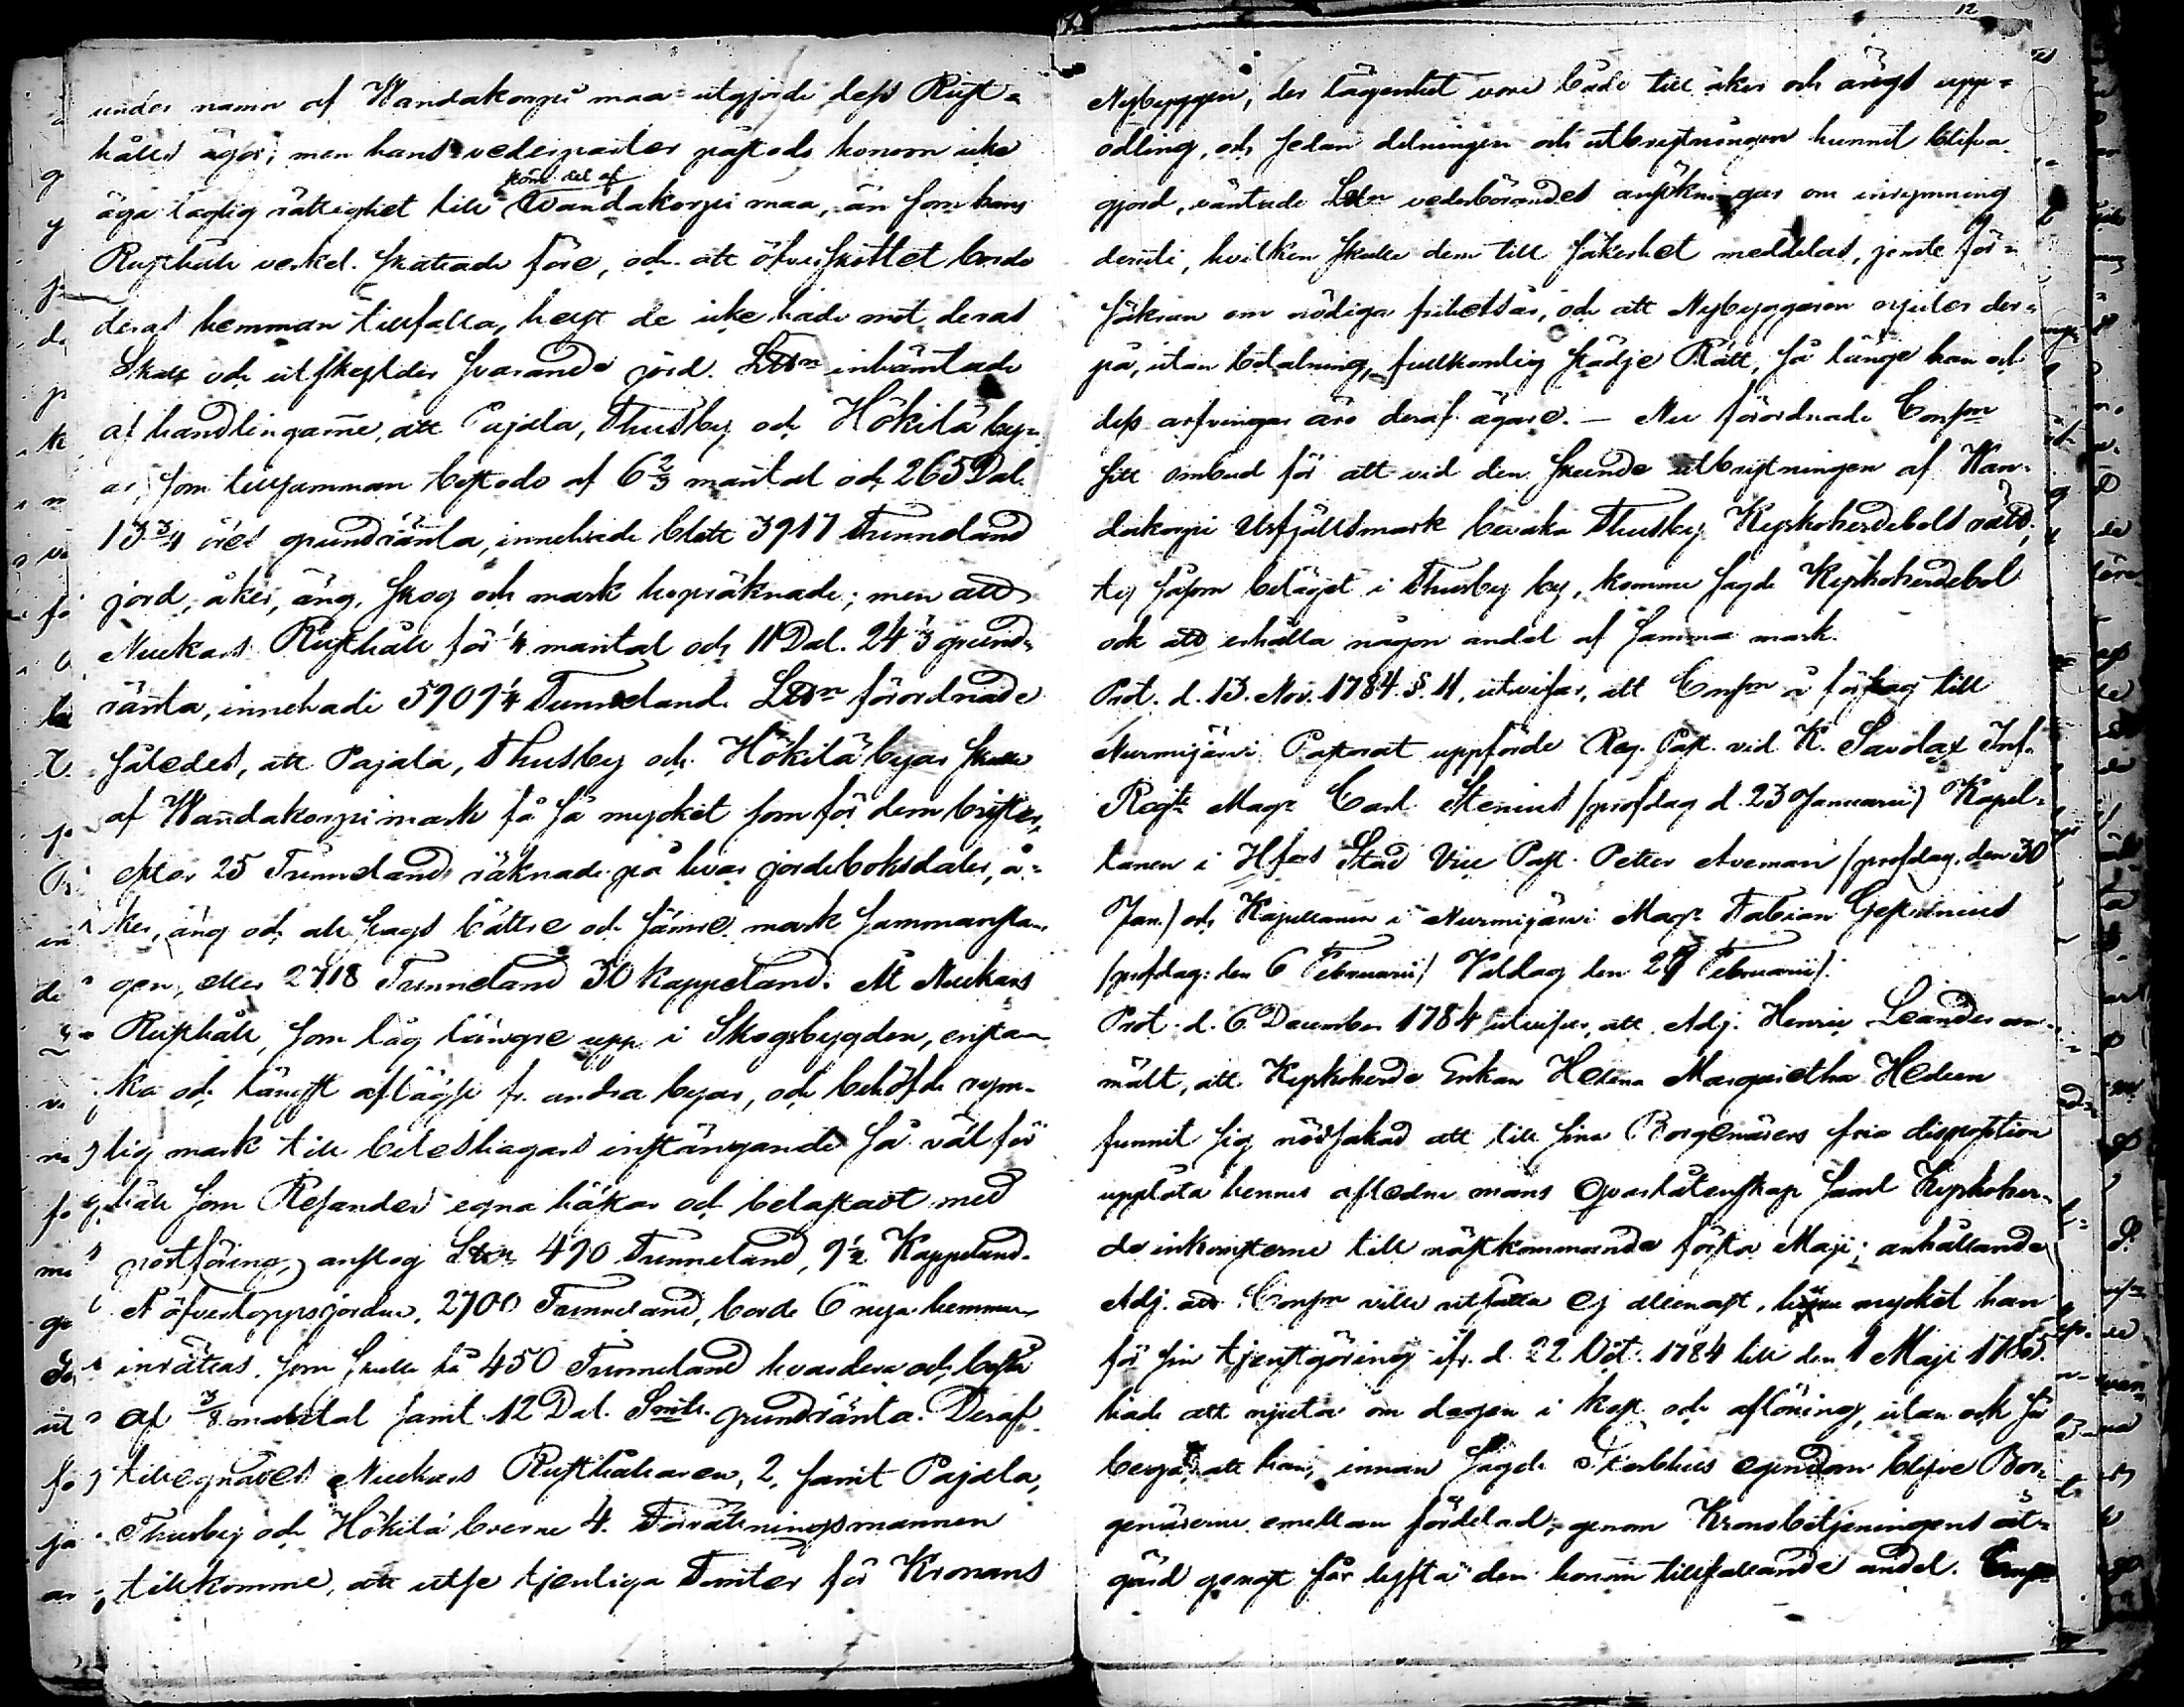 under namn af Wandakorpi maa utgjorde dess Rust-
hålls ägor; men hans vederparter påstodo honom icke
äga laglig rättighet till större del af Wandakorpi maa, än som hans
Rusthåll verkel. skattade före, och att öfverskottet borde
deras hemman tillfalla, helst de icke hade mot deras
Skatt och utskylder svarande jord. Ldtn inhämtade
af handlingarne, att Pajala, Thusby och Hökilä by-
ar, som tillsamman bestodo af 6 2/3 mantal och 265 Dal.
13 3/4 öres grundränta, innehade blott 3917 Tunneland
jord, åker, äng, skog och mark hopräknade; men att
Nuckars Rusthåll för 1/4 mantal och 11 Dal. 24 1/3 grund-
ränta, innehade 5909 1/4 Tunneland. Ldtn förordnade
således, att Pajala, Thusby och Hökilä byar skulle
af Wandakorpi mark få så mycket som för dem brister,
efter 25 Tunneland räknade på hvar jordeboksdaler, å-
ker, äng och all slags bättre och sämre mark sammanta-
gen, eller 2718 Tunneland 30 kappeland. Åt Nuckars
Rusthåll, som låg längre upp i Skogsbygden, ensta-
ka och längst aflägse fr. andra byar, och behöfde rym-
lig mark till beteshagars instängande så väl för
håll som Resandes egna hästar och belastadt med
postföring, anslog Ldtn 490 Tunneland, 9 1/2 Kappeland.
Å öfverloppsjorden, 2700 Tunneland, borde 6 nya hemman
inrättas, som skulle få 450 Tunneland hvardera och bestå
af 3/8 mantal samt 12 Dal. Smts. grundränta. Deraf
tillegnades Nuckars Rusthållaren, 2, samt Pajala,
Thusby och Hökilä boerne 4. Förrättningsmannen
tillkomme, att utse tjenliga Tomter för Kronans
12
Nybyggen, der lägenhet vore både till åker och ängs upp-
odling, och sedan delningen och utbrytningen hunnit blifva
gjord, väntade Ldtn vederbörandes ansökningar om inrymning
deruti, hvilken skulle dem till säkerhet meddelas, jemte för-
säkran om nödiga frihetsår, och att Nybyggaren njuter der-
på, utan betalning, fullkomlig städje Rätt, så länge han och
dess arfvingar äro deraf ägare. — Nu förordnade Consm
sitt ombud för att vid den skeende utbrytningen af Wan-
dakorpi Utfjällsmark bevaka Thusby Kyrkoherdebols rätt;
ty såsom beläget i Thusby by, komme sagde Kyrkoherdebol
ock att erhålla någon andel af samma mark.
Prot. d. 13. Nov. 1784. §. 11, utvisar, att Consm å förslag till
Nurmijärvi Pastorat uppförde Reg. Past. vid K. Savolax Inf.
Regte Magr Carl Stenius (profdag d. 23 Januarii) Kapel-
lanen i Hfors Stad Vice Past. Petter Aveman (profdag. den 30
Jan.) och Kapellanen i Nurmijärvi Magr Fabian Gestrinius
(profdag: den 6 Februarii) Valdag den 27 Februarii).
Prot. d. 6 December 1784 utvisar, att Adj. Henric Leander an-
mält, att Kyrkoherde Enkan Helena Margaretha Hedeen
funnit sig nödsakad att till sina Borgenärers fria disposition
upplåta hennes aflednе mans Qvarlåtenskap samt Kyrkoher-
de inkomsterne till nästkommande första Maji; anhållande
Adj. att Consm ville utsätta ej allenast, huru mycket han
för sin tjenstgöring ifr. d. 22 Oct. 1784 till den 1 Maji 1785.
hade att njuta om dagen i kost och aflöning, utan ock så
begä, att han, innan sagde Sterbhus egendom blefve Bor-
genärerne emellan fördelad, genom Kronobetjeningens åt-
gärd genast får lyfta den honom tillfallande andel. Consm